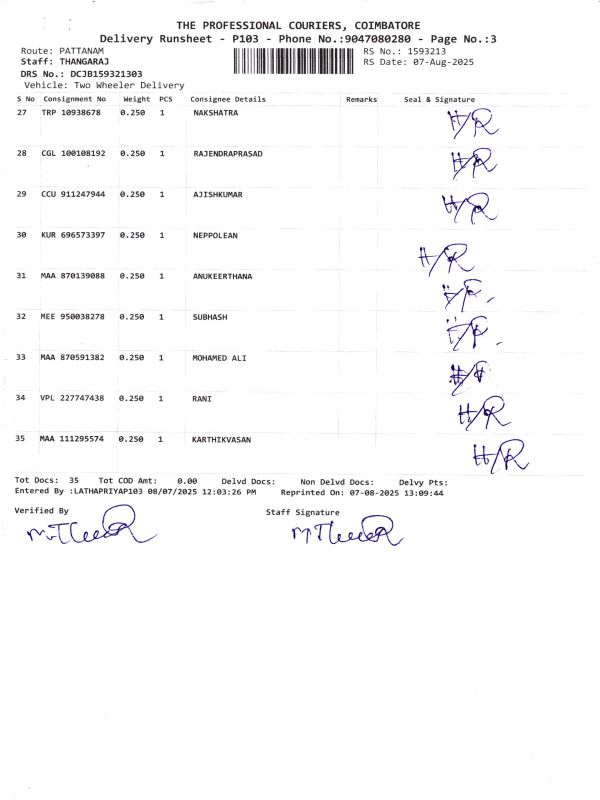 THE PROFESSIONAL COURIERS, COIMBATORE
Delivery Runsheet - P103 - Phone No.:9047080280 - Page No.:3
Route: PATTANAM RS No.: 1593213
Staff: THANGARAJ RS Date: 07-Aug-2025
DRS No.: DCJB159321303
Vehicle: Two Wheeler Delivery
S No Consignment No Weight PCS Consignee Details Remarks Seal & Signature
27 TRP 10938678 0.250 1 NAKSHATRA H/R
28 CGL 100108192 0.250 1 RAJENDRAPRASAD H/R
29 CCU 911247944 0.250 1 AJISHKUMAR H/R
30 KUR 696573397 0.250 1 NEPPOLEAN H/R
31 MAA 870139088 0.250 1 ANUKEERTHANA
32 MEE 950038278 0.250 1 SUBHASH
33 MAA 870591382 0.250 1 MOHAMED ALI
34 VPL 227747438 0.250 1 RANI H/R
35 MAA 111295574 0.250 1 KARTHIKVASAN H/R
Tot Docs: 35 Tot COD Amt: 0.00 Delvd Docs: Non Delvd Docs: Delvy Pts:
Entered By :LATHAPRIYAP103 08/07/2025 12:03:26 PM Reprinted On: 07-08-2025 13:09:44
Verified By Staff Signature